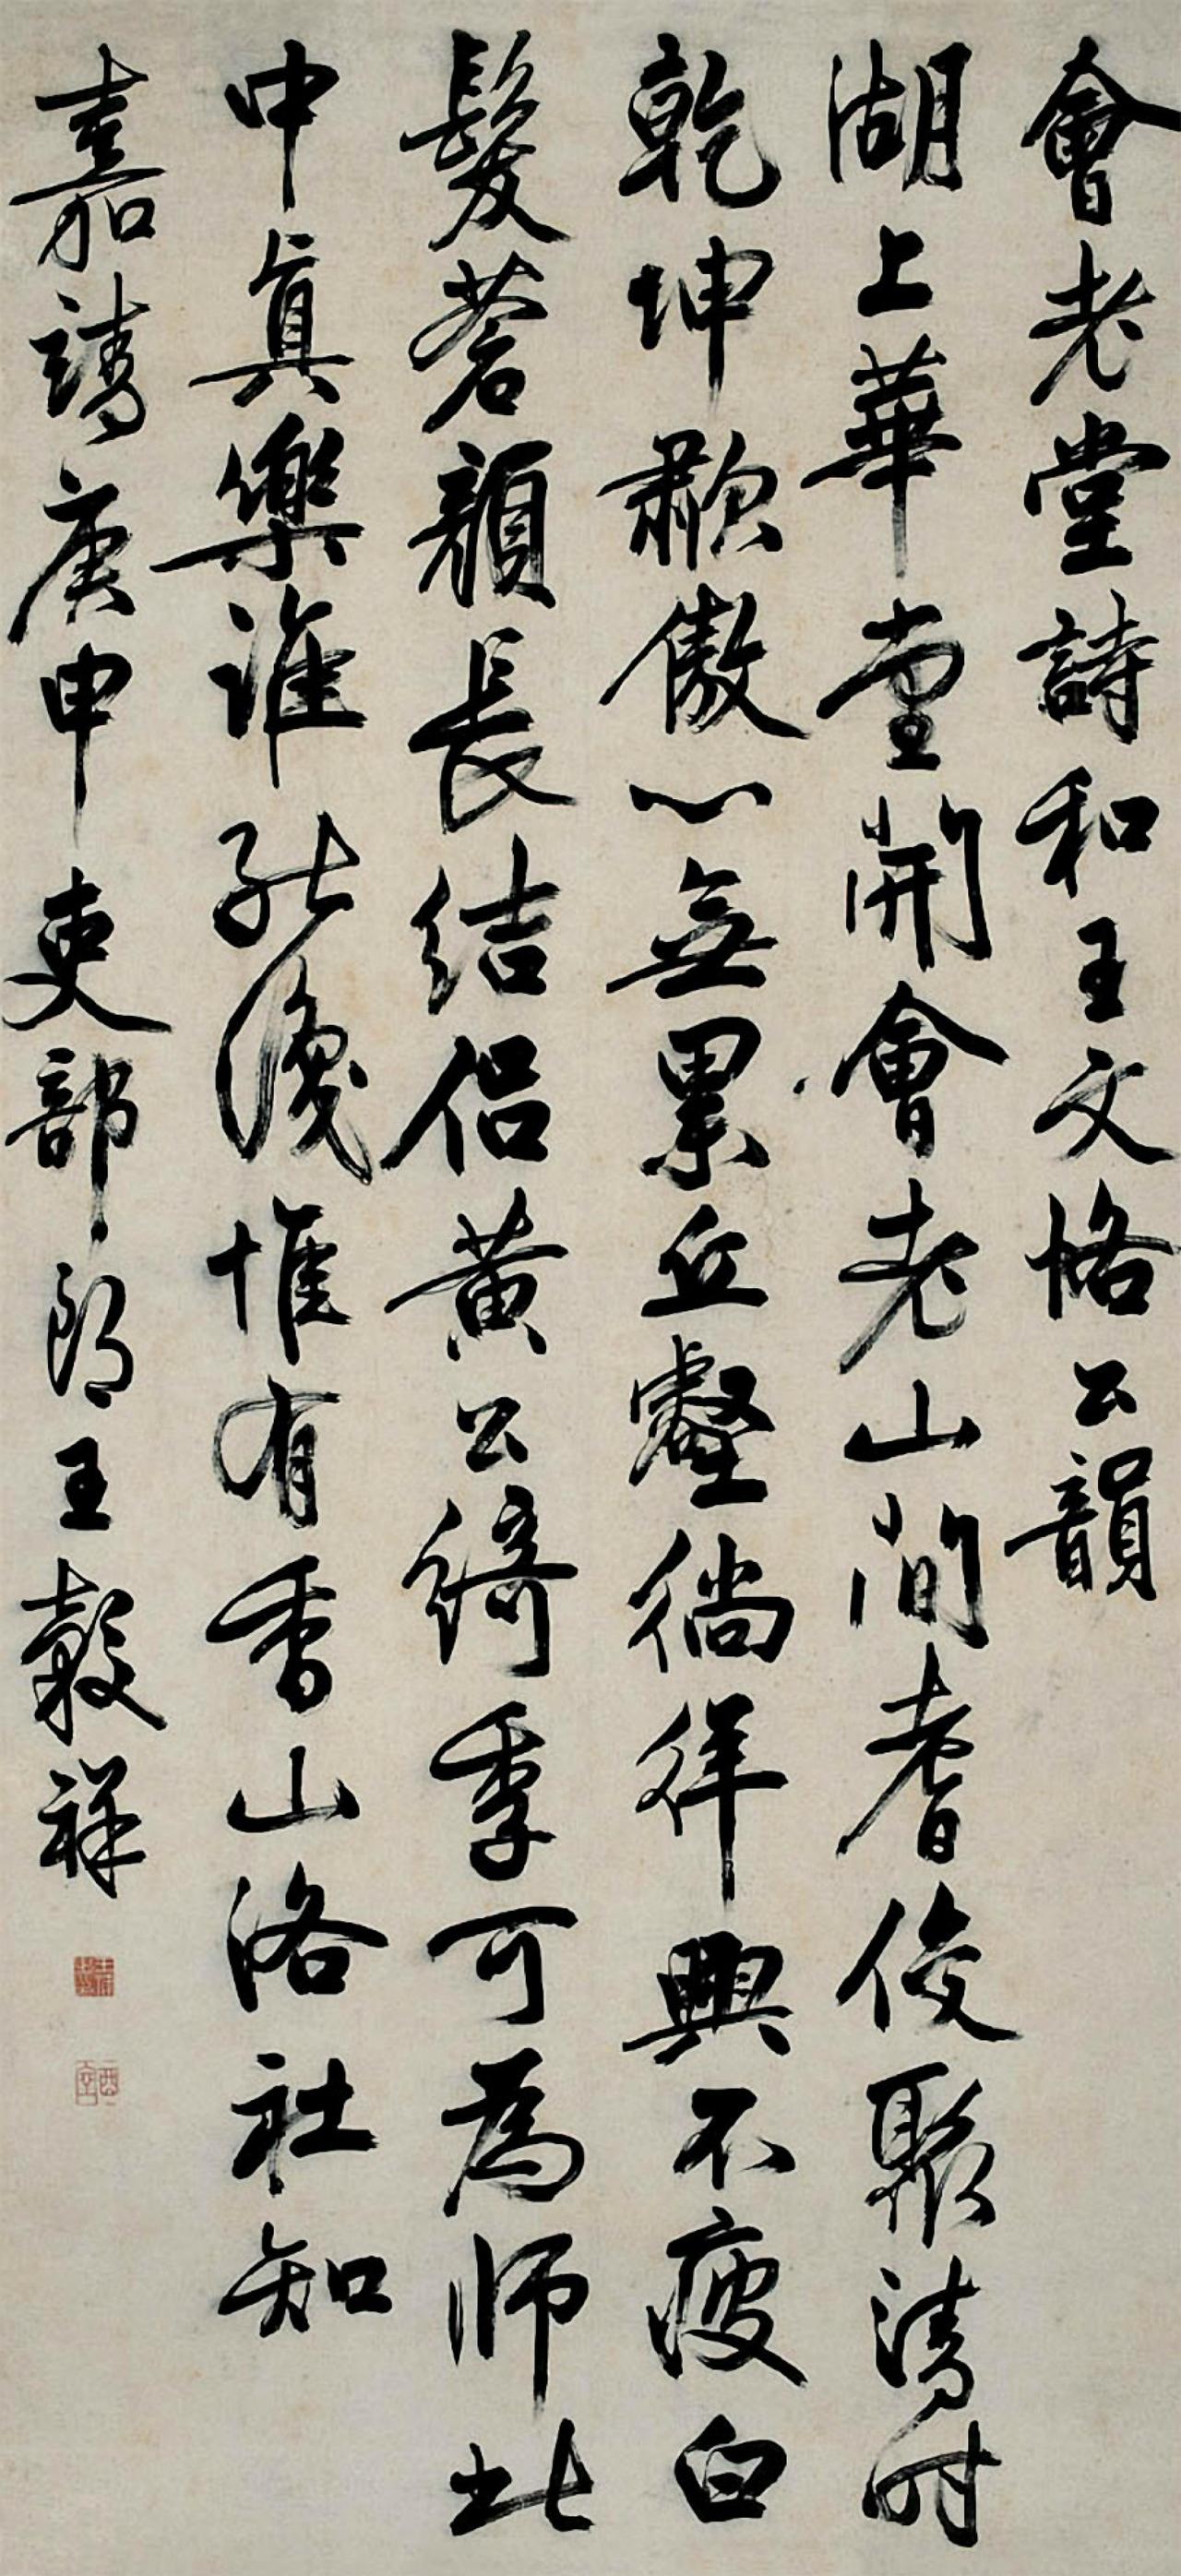 會老堂詩和王文恪公韻
湖上華堂開會老山間耆俊聚清時
乾坤歗傲心無累丘壑徜徉興不疲白
髮蒼顏長結侶黃公綺季可為師此
中真樂誰能識惟有香山洛社知
嘉靖庚申吏部郎王穀祥
酉室